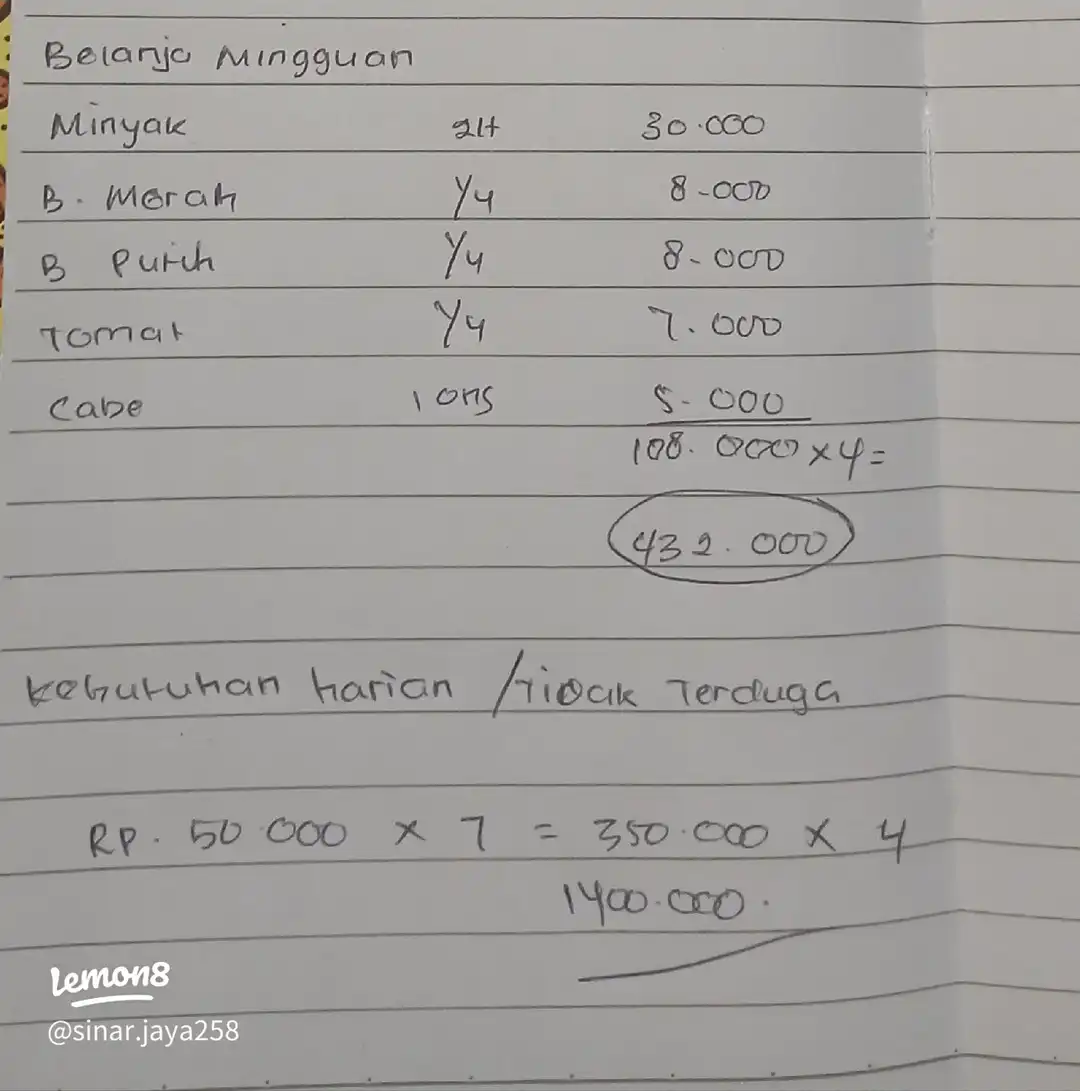 Belanja Mingguan
Minyak 2lt 30.000
B. Merah 1/4 8-000
B Putih 1/4 8-000
Tomat 1/4 7.000
Cabe 1 ons 5-000
108.000 x 4 =
432.000
Kebutuhan harian /Tidak Terduga
RP. 50.000 x 7 = 350.000 x 4
1400.000.
lemon8
@sinar.jaya258